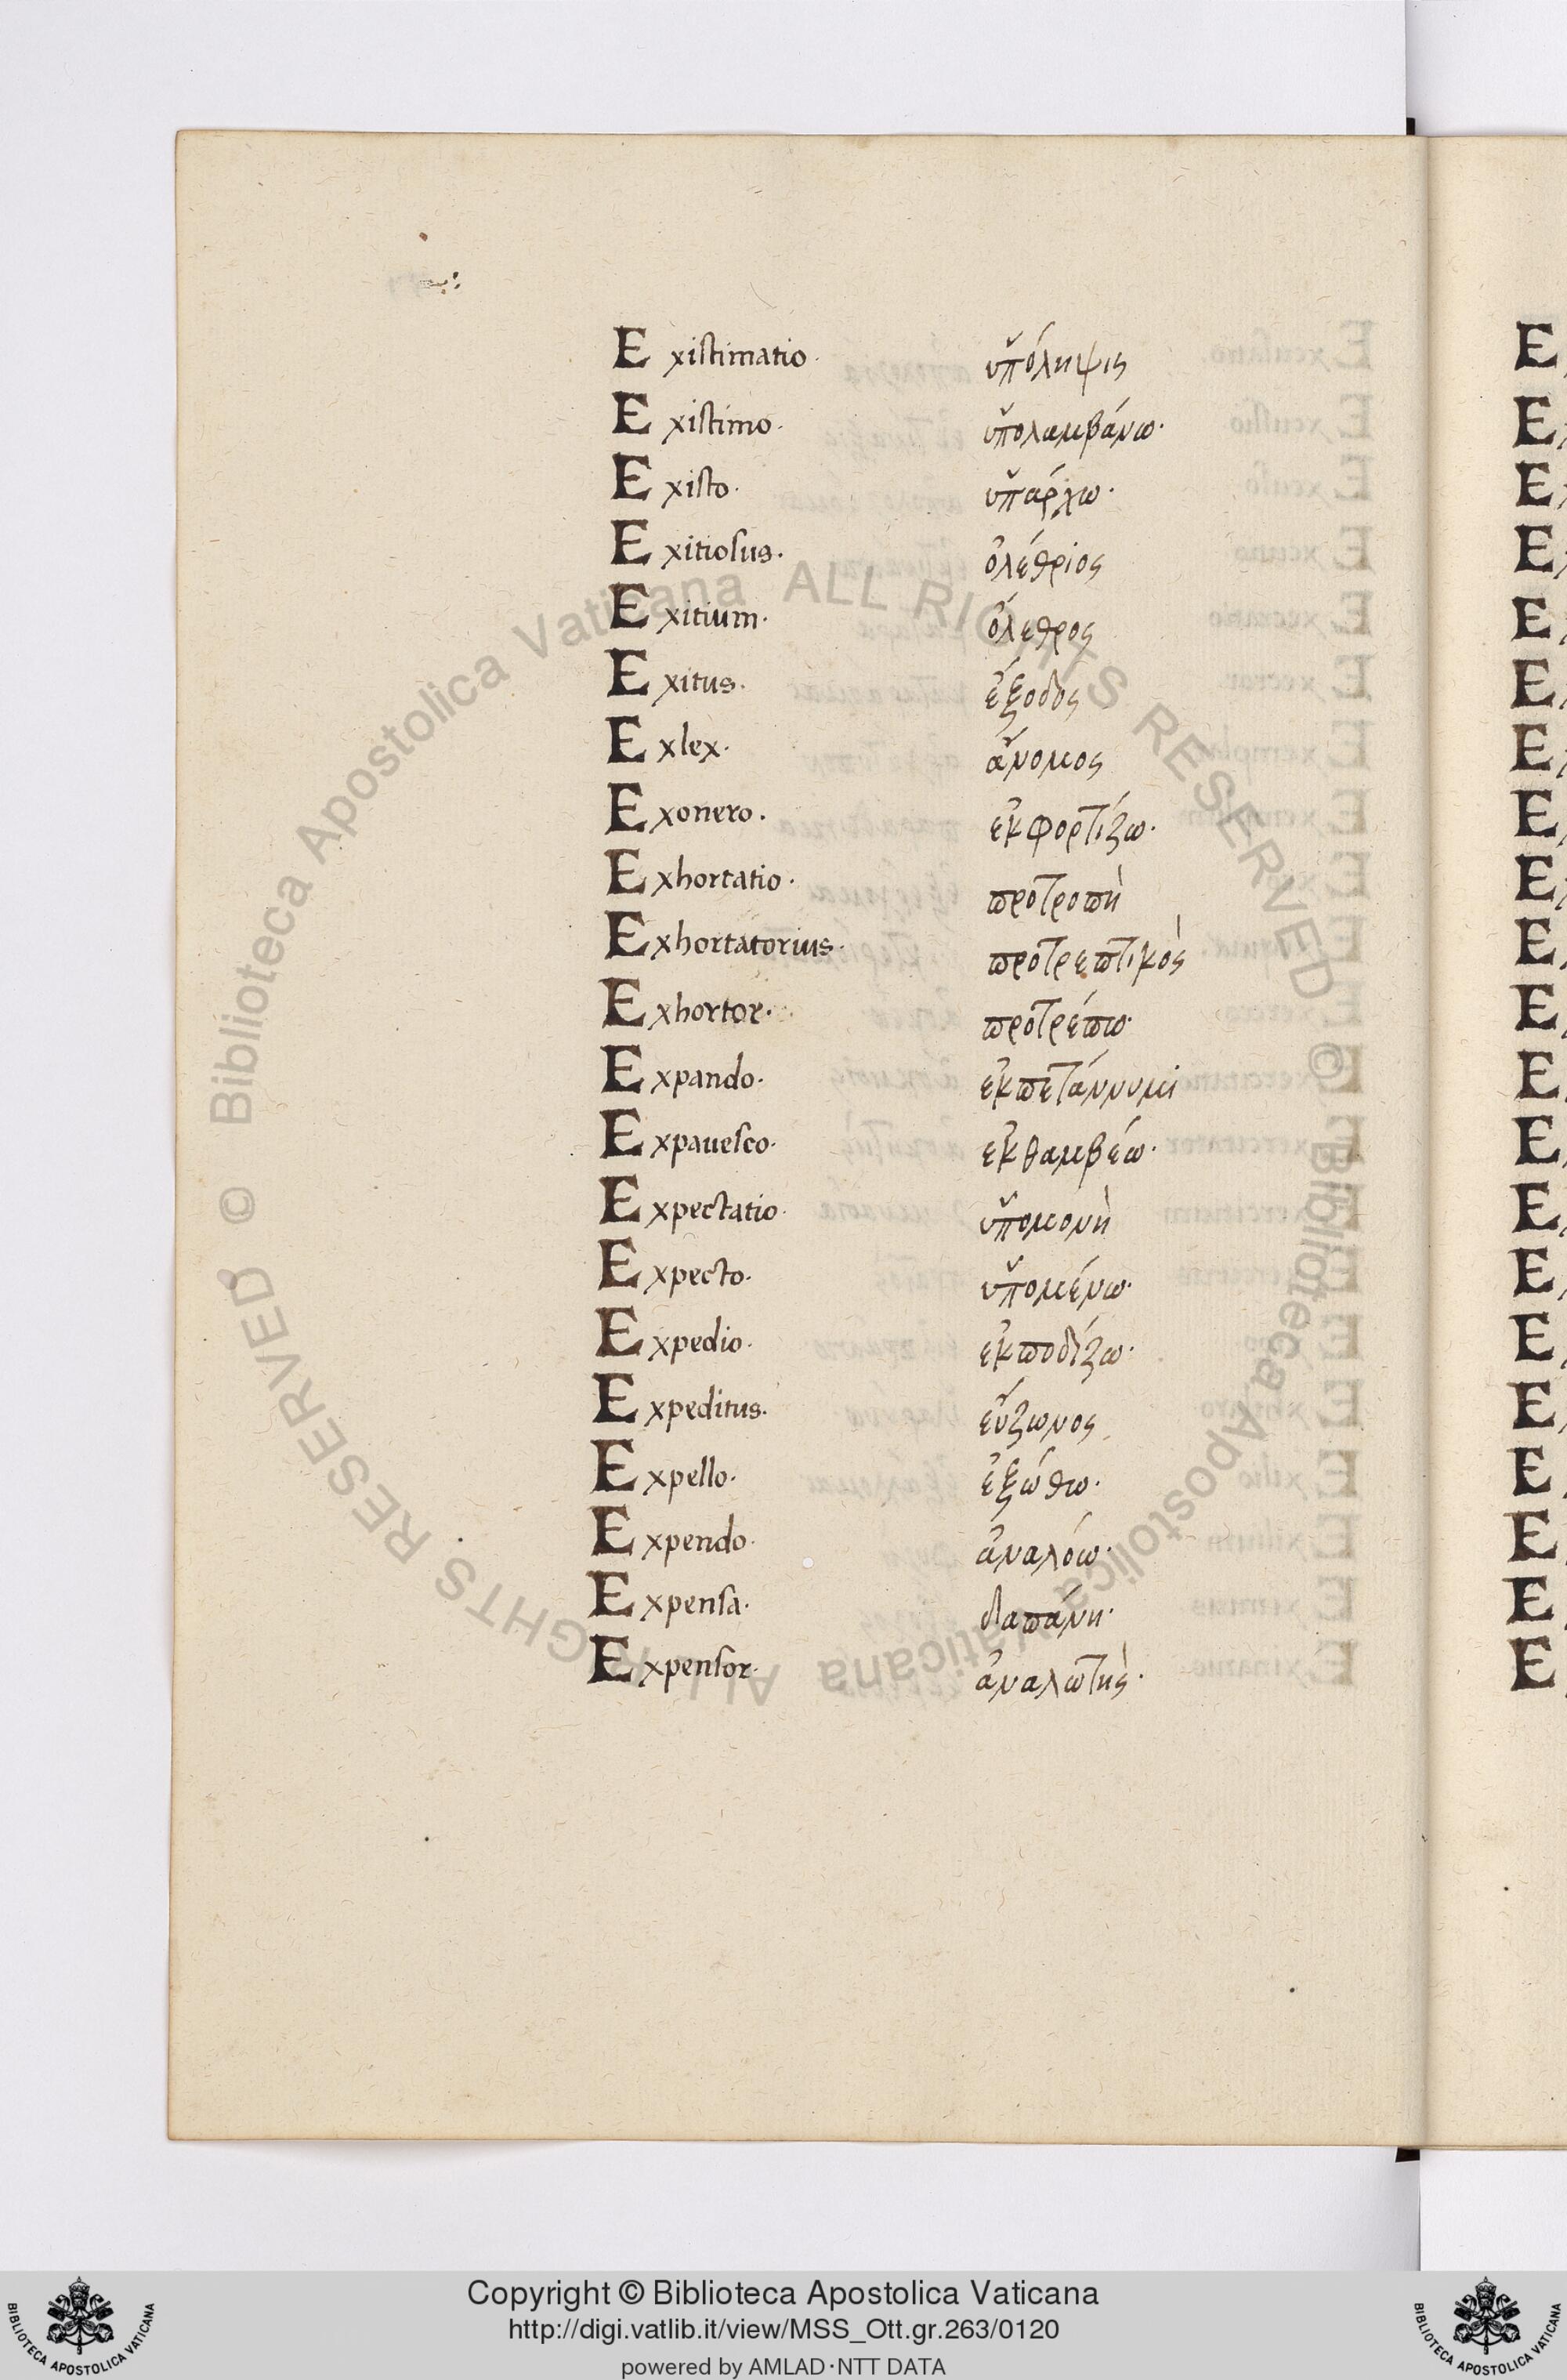 Existimatio· ὑπόληψις
Existimo· ὑπολαμβάνω·
Existo· ὑπάρχω·
Exitiosus· ὀλέθριος
Exitium· ὄλεθρος
Exitus· ἔξοδος
Exlex· ἄνομος
Exonero· ἐκφορτίζω·
Exhortatio· προτροπὴ
Exhortatorius· προτρεπτικὸς
Exhortor· προτρέπω·
Expando· ἐκπετάννυμι
Expauesco· ἐκθαμβέω·
Expectatio· ὑπομονὴ
Expecto· ὑπομένω·
Expedio· ἐκποδίζω·
Expeditus· εὔζωνος
Expello· ἐξώθω·
Expendo· ἀναλόω·
Expensa· δαπάνη·
Expensor· ἀναλωτὴς·
Biblioteca Apostolica Vaticana ALL RIGHTS RESERVED ©
Biblioteca Apostolica Vaticana ALL RIGHTS RESERVED ©
Copyright © Biblioteca Apostolica Vaticana
http://digi.vatlib.it/view/MSS_Ott.gr.263/0120
powered by AMLAD·NTT DATA
BIBLIOTECA APOSTOLICA VATICANA
BIBLIOTECA APOSTOLICA VATICANA